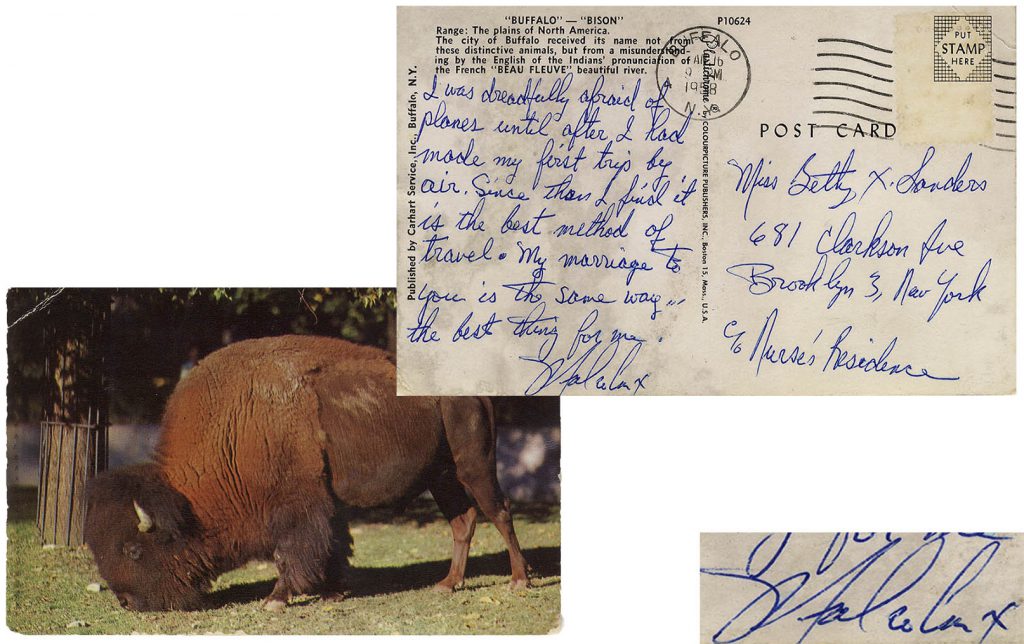 "BUFFALO" — "BISON"
Range: The plains of North America.
The city of Buffalo received its name not from
these distinctive animals, but from a misunderstand-
ing by the English of the Indians' pronunciation of
the French "BEAU FLEUVE" beautiful river.
P10624
Published by Carhart Service, Inc., Buffalo, N.Y.
I was dreadfully afraid of
planes until after I had
made my first trip by
air. Since than I find it
is the best method of
travel. My marriage to
you is the same way...
the best thing for me.
Malcolm X
by COLOURPICTURE PUBLISHERS, INC., Boston 15, Mass., U.S.A.
BUFFALO
16
PM
1958
N.Y.
PUT
STAMP
HERE
POST CARD
Miss Betty X. Sanders
681 Clarkson Ave
Brooklyn 3, New York
c/o Nurse's Residence
for me
Malcolm X